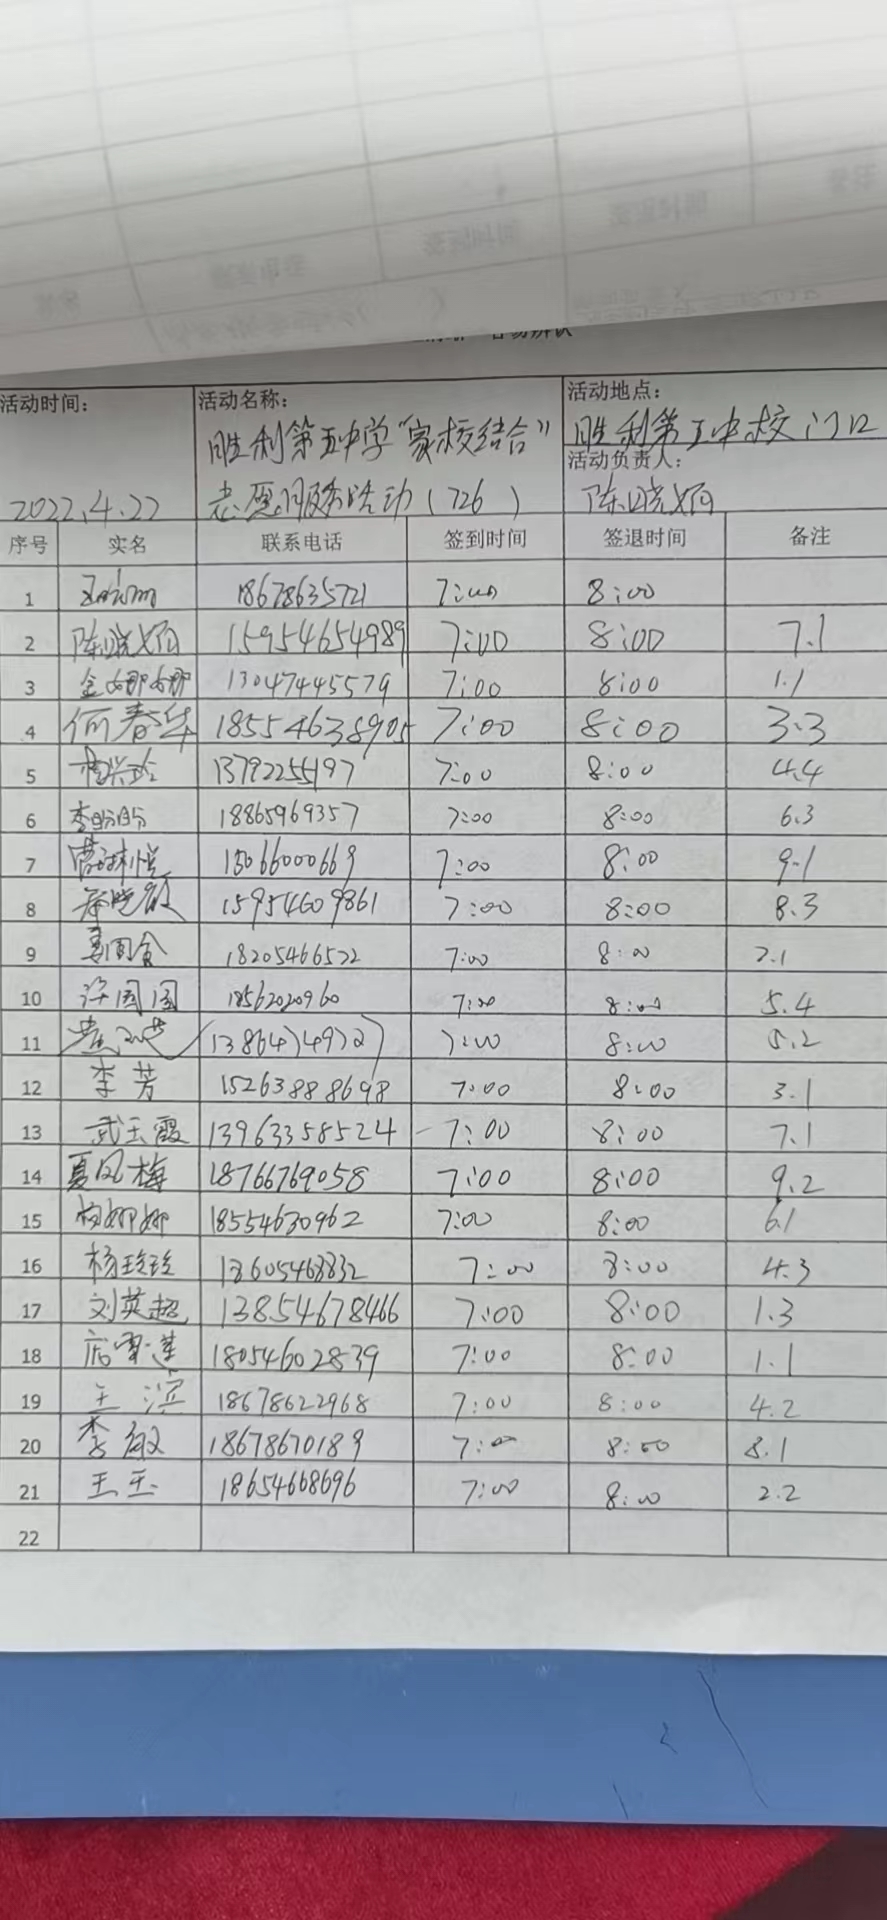 活动时间: 活动名称: 活动地点:
胜利第五中学“家校结合” 胜利第五中校门口
活动负责人:
2022.4.22 志愿服务活动(726) 陈晓娟
序号 实名 联系电话 签到时间 签退时间 备注
1 18678635721 7:00 8:00
2 陈晓娟 15954654989 7:00 8:00 7.1
3 金娜娜 13047445579 7:00 8:00 1.1
4 何春华 18554638905 7:00 8:00 3.3
5 13792255197 7:00 8:00 4.4
6 李盼盼 18865969357 7:00 8:00 6.3
7 15066000669 7:00 8:00 9.1
8 15954609861 7:00 8:00 8.3
9 姜国金 18205466522 7:00 8:00 2.1
10 许园园 1856202960 7:00 8:00 5.4
11 7:00 8:00 5.2
12 李芳 15263888698 7:00 8:00 3.1
13 武玉霞 13963358524 7:00 8:00 7.1
14 夏风梅 18766769058 7:00 8:00 9.2
15 18554630962 7:00 8:00 6.1
16 杨玲玲 18605468832 7:00 8:00 4.3
17 刘英超 13854678466 7:00 8:00 1.3
18 18054602839 7:00 8:00 1.1
19 王滨 18678622968 7:00 8:00 4.2
20 李敏 18678670189 7:00 8:00 8.1
21 王玉 18654668696 7:00 8:00 2.2
22